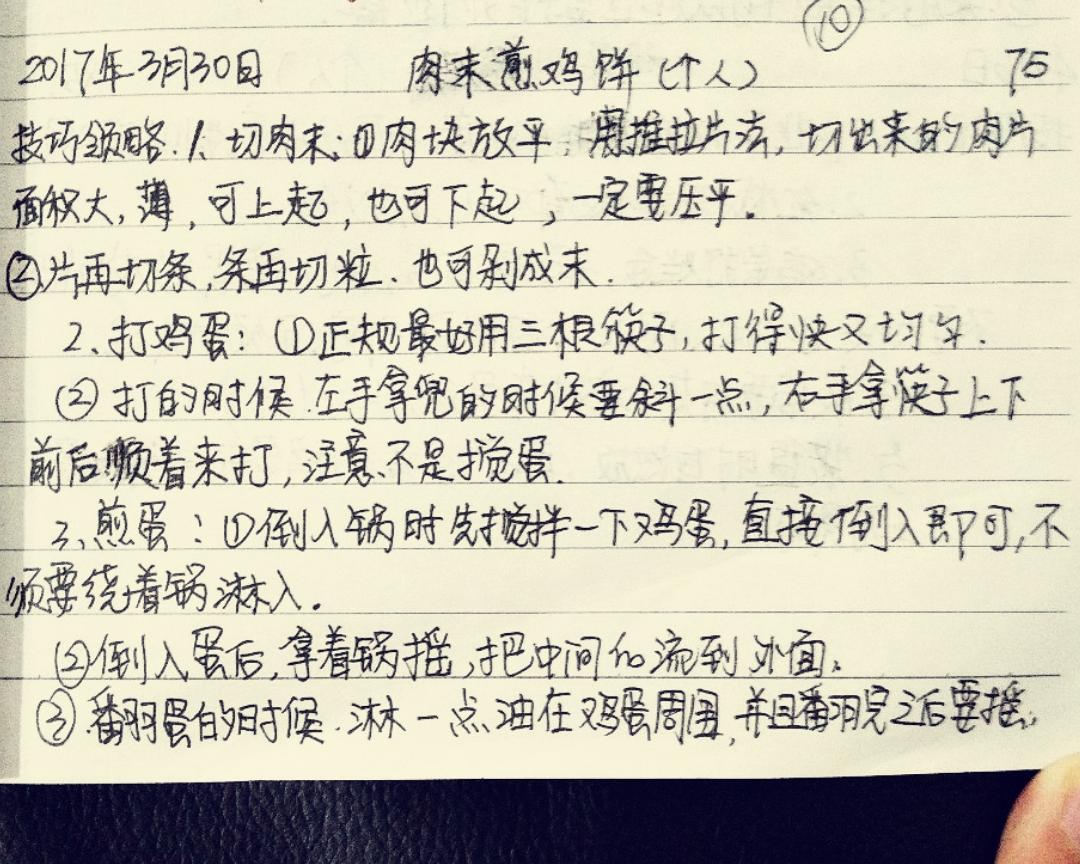 ⑩
2017年3月30日 肉末煎鸡饼(个人) 75
技巧领略.1、切肉末:①肉块放平,用推拉片法,切出来的肉片
面积大,薄,可上起,也可下起,一定要压平。
②片再切条,条再切粒.也可剁成末.
2、打鸡蛋:①正规最好用三根筷子,打得快又均匀.
② 打的时候.左手拿兜的时候要斜一点,右手拿筷子上下
前后顺着来打,注意不是搅蛋.
3、煎蛋:①倒入锅时先搅拌一下鸡蛋,直接倒入即可,不
须要绕着锅淋入。
②倒入蛋后,拿着锅摇,把中间的流到外面。
③翻蛋的时候.淋一点油在鸡蛋周围,并且翻完之后要摇.